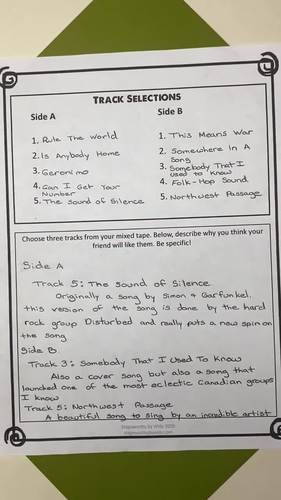 TRACK SELECTIONS
Side A
Side B
1. Rule The World
2. Is Anybody Home
3. Geronimo
4. Can I Get Your
Number
5. The Sound of Silence
1. This Means War
2. Somewhere In A
Song
3. Somebody That I
used to Know
4. Folk-Hop Sound
5. Northwest Passage
Choose three tracks from your mixed tape. Below, describe why you think your
friend will like them. Be specific!
Side A
Track 5: The Sound of Silence
Originally a song by Simon + Garfunkel,
this version of the song is done by the hard
rock group Disturbed and really puts a new spin on
the song
Side B
Track 3: Somebody That I Used To Know
Also a cover song but also a song that
launched one of the most eclectic Canadian groups
I know
Track 5: Northwest Passage
A beautiful song to sing by an incredible artist